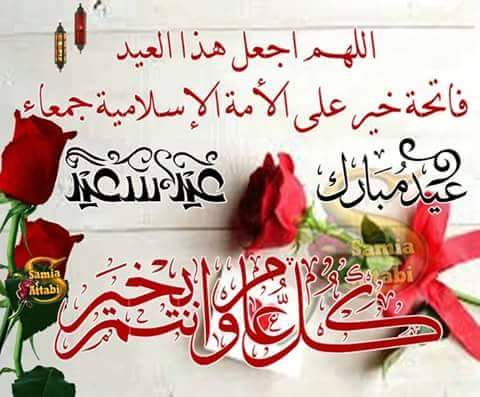 اللهم اجعل هذا العيد
فاتحة خير على الأمة الإسلامية جمعاء
عيد مبارك
عيد سعيد
كل عام وانتم بخير
Samia Attabi
Samia Attabi